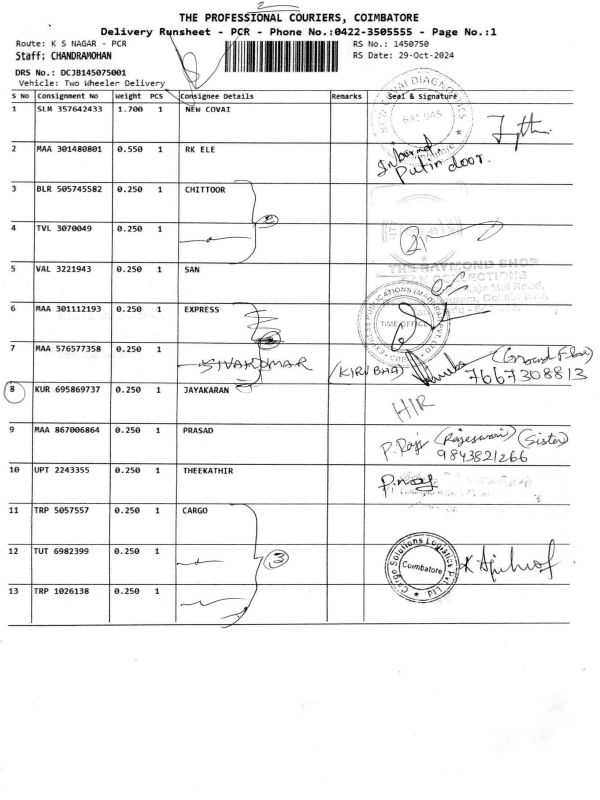 2
THE PROFESSIONAL COURIERS, COIMBATORE
Delivery Runsheet - PCR - Phone No.:0422-3505555 - Page No.:1
Route: K S NAGAR - PCR RS No.: 1450750
Staff: CHANDRAMOHAN RS Date: 29-Oct-2024
DRS No.: DCJB145075001
Vehicle: Two Wheeler Delivery
S No Consignment No Weight PCS Consignee Details Remarks Seal & Signature
1 SLM 357642433 1.700 1 NEW COVAI
641 045
2 MAA 301480801 0.550 1 RK ELE
Putin door.
3 BLR 505745582 0.250 1 CHITTOOR
2
4 TVL 3070049 0.250 1
5 VAL 3221943 0.250 1 SAN
THE RAYMOND SHOP
COLLECTIONS
6 MAA 301112193 0.250 1 EXPRESS
TIME OFFICE
7 MAA 576577358 1 SIVAKUMAR (KIRUBHA) (Ground Floor)
7667308813
8 KUR 695869737 0.250 1 JAYAKARAN
9 MAA 867006864 0.250 1 PRASAD P. Raji (Rajeswari) (Sister)
9843821266
10 UPT 2243355 0.250 1 THEEKATHIR
11 TRP 5057557 0.250 1 CARGO
Cargo Solutions Logistics Pvt. Ltd.
Coimbatore
12 TUT 6982399 0.250 1 3
13 TRP 1026138 0.250 1